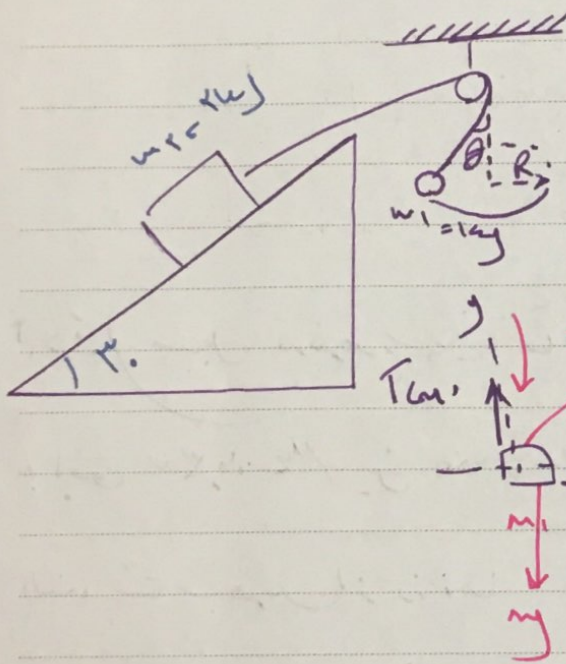 m₂ = 2kg
θ
R
m₁ = 1kg
۳۰
y
T cos
m₁
mg